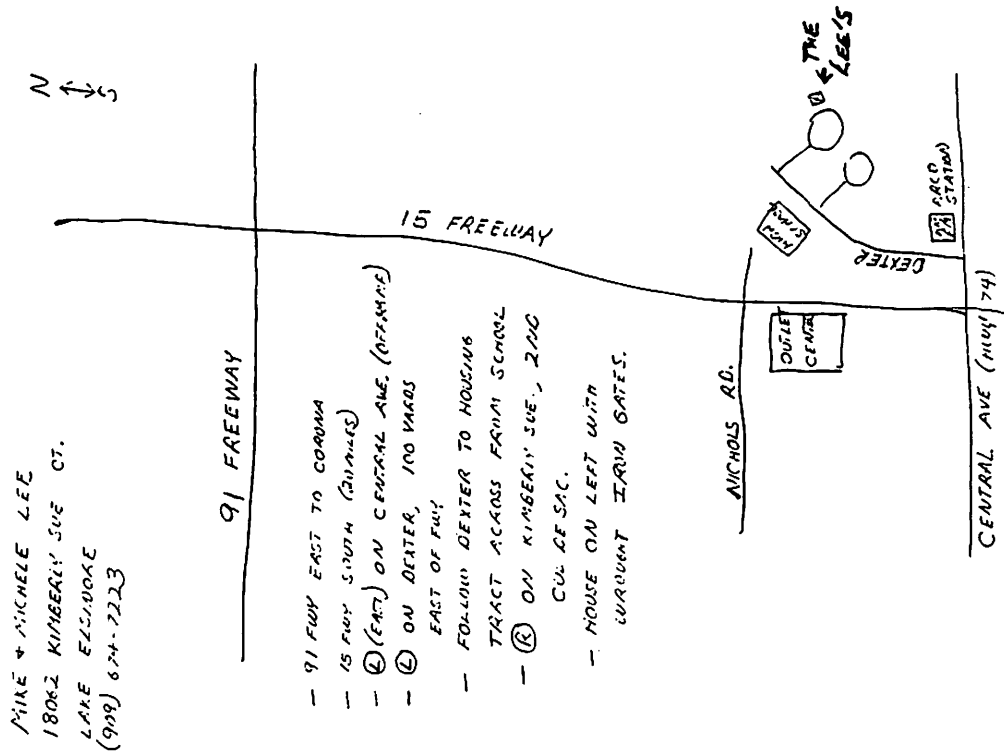 MIKE + MICHELE LEE
18062 KIMBERLY SUE CT.
LAKE ELSINORE
(909) 674-7223
N
S
91 FREEWAY
15 FREEWAY
- 91 FWY EAST TO CORONA
- 15 FWY SOUTH (20 MILES)
- (L) (EAST) ON CENTRAL AVE. (OFFRAMP)
- (L) ON DEXTER, 100 YARDS
EAST OF FWY
- FOLLOW DEXTER TO HOUSING
TRACT ACROSS FROM SCHOOL
- (R) ON KIMBERLY SUE., 2ND
CUL DE SAC.
- HOUSE ON LEFT WITH
WROUGHT IRON GATES.
NICHOLS RD.
OUTLET
CENTER
HIGH
SCHOOL
DEXTER
THE
LEE'S
ARCO
STATION
CENTRAL AVE (HWY 74)